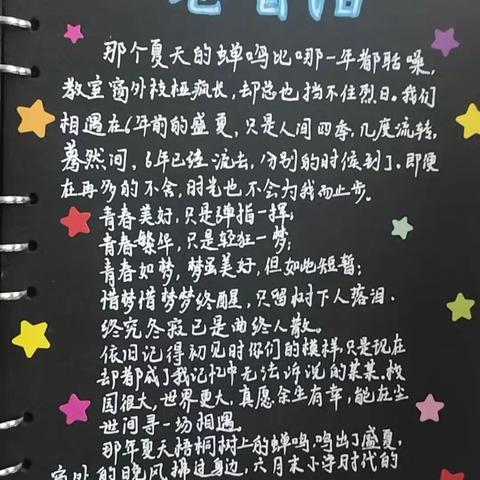 那个夏天的蝉鸣比哪一年都聒噪,
教室窗外枝桠疯长,却总也挡不住烈日。我们
相遇在6年前的盛夏,只是人间四季,几度流转,
蓦然间,6年已经流去,分别的时候到了。即便
在再多的不舍,时光也不会为我而止步。
青春美好,只是弹指一挥;
青春繁华,只是轻狂一梦;
青春如梦,梦虽美好,但如此短暂;
惜梦惜梦梦终醒,只留树下人落泪.
终究冬寂已是曲终人散。
依旧记得初见时你们的模样,只是现在
却都成了我记忆中无法诉说的某某.校
园很大,世界更大,真愿余生有幸,能在尘
世间寻一场相遇。
那年夏天梧桐树上的蝉鸣,鸣出了盛夏,
窗外的晚风拂过身边,六月末小学时代的